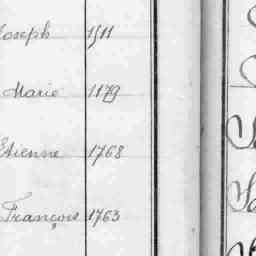 Joseph 1511
Marie 1179
Etienne 1768
François 1763